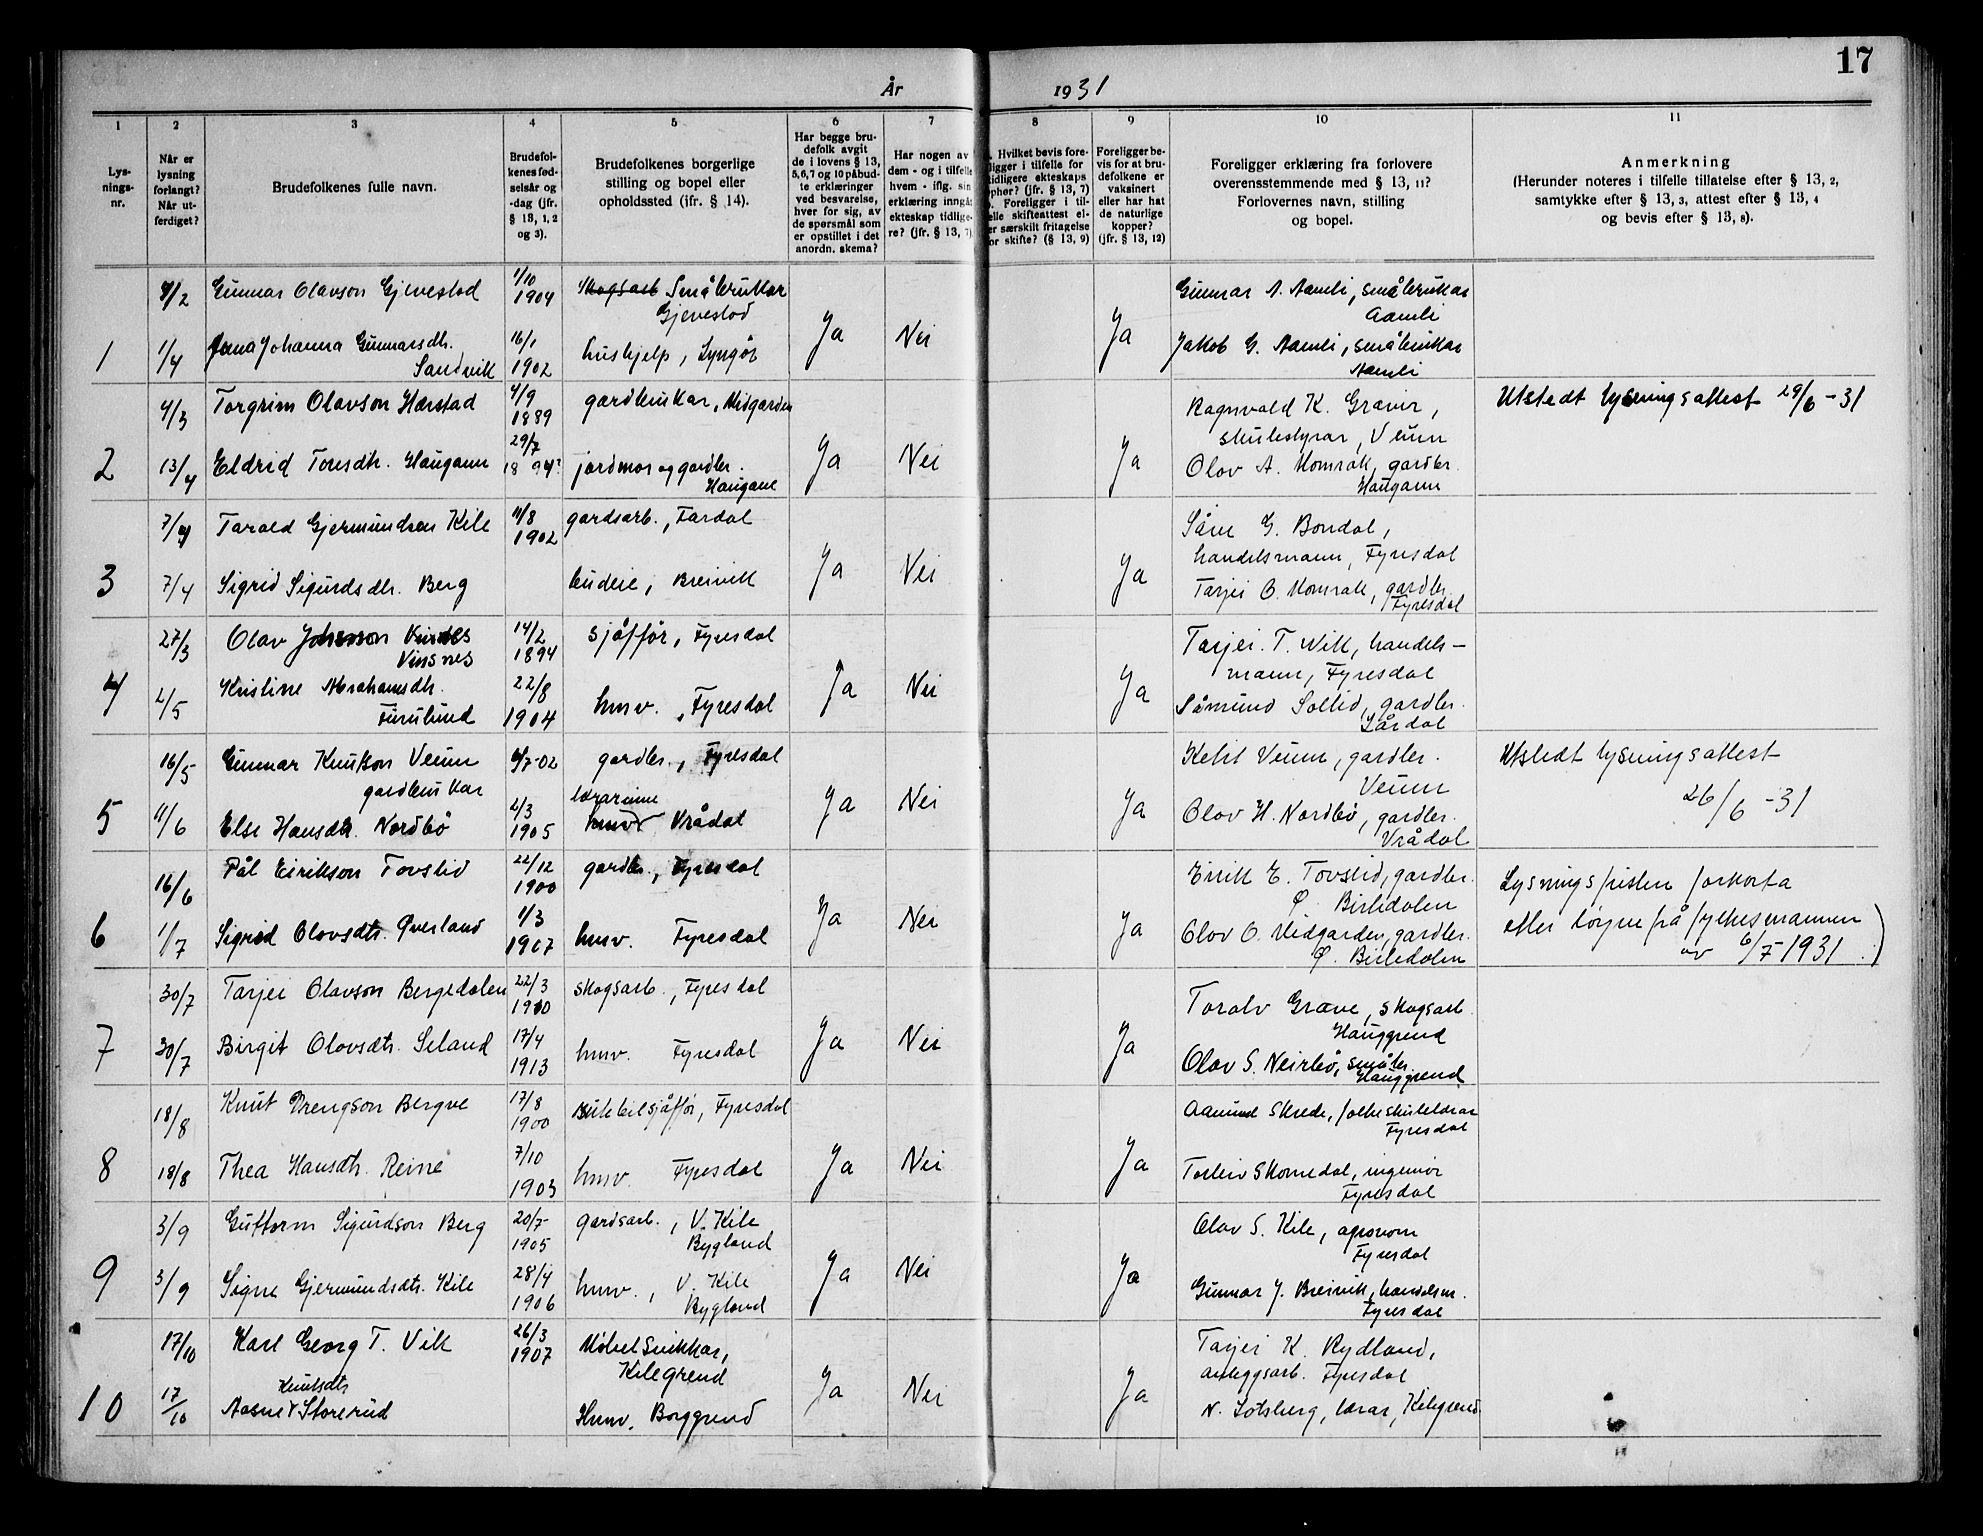 17
År 1931
1 2 3 4 5 6 7 8 9 10 11
Lysnings-nr.
Når er lysning forlangt? Når utferdiget?
Brudefolkenes fulle navn.
Brudefolkenes fødselsår og -dag (jfr. § 13, 1, 2 og 3).
Brudefolkenes borgerlige stilling og bopel eller opholdssted (jfr. § 14).
Har begge brudefolk avgit de i lovens § 13, 5,6,7 og 10 påbudte erklæringer ved besvarelse, hver for sig, av de spørsmål som er opstillet i det anordn. skema?
Har nogen av dem - og i tilfelle hvem - iflg. sin erklæring inngåt ekteskap tidligere? (jfr. § 13, 7)
Hvilket bevis foreligger i tilfelle for tidligere ekteskaps ophør? (jfr. § 13, 7)
Foreligger i tilfelle skifteattest eller særskilt fritagelse for skifte? (§ 13, 9)
Foreligger bevis for at brudefolkene er vaksinert eller har hat de naturlige kopper? (jfr. § 13, 12)
Foreligger erklæring fra forlovere overensstemmende med § 13, 11? Forlovernes navn, stilling og bopel.
Anmerkning
(Herunder noteres i tilfelle tillatelse efter § 13, 2, samtykke efter § 13, 3, attest efter § 13, 4 og bevis efter § 13, 8).
Gunnar Olavson Gjevestad 1/10 1904 skogsarb Småbrukar Gjevestad
1 1/4 Johanna Gunnarsdtr. Sandvik 16/1 1902 hushjelp, Lyngør Ja Nei Ja
Gunnar A. Aamli, småbrukar Aamli
Jakob G. Aamli, småbrukar Aamli
4/3 Torgrim Olavson Harstad 4/9 1889 gardbrukar, Midgarden
2 13/4 Eldrid Toresdtr. Haugann 29/7 1894 jordmor og gardbr. Haugane Ja Nei Ja
Ragnvald K. Gravir, skulestyrar, Veum
Olav A. Momrak, gardbr. Haugann
Utstedt lysningsattest 29/6-31
7/4 Tarald Gjermundsen Kile 11/8 1902 gardsarb., Fardal
3 7/4 Sigrid Sigurdsdtr. Berg budeie, Breivik Ja Nei Ja
G. Bondal, handelsmann, Fyresdal
Tarjei O. Momrak, gardbr. Fyresdal
27/3 Olav Johnsson Vinsnes 14/2 1894 sjåffør, Fyresdal
4 2/5 Kristine Abrahamsdtr. Furulund 22/8 1904 husv., Fyresdal Ja Nei Ja
Tarjei T. Wik, handelsmann, Fyresdal
Såmund Sollid, gardbr. Lårdal
16/5 Gunnar Knutson Veum gardbrukar 4/7-02 gardbr., Fyresdal
5 11/6 Else Hansdtr. Nordbø 2/3 1905 lærarinne husv Vrådal Ja Nei Ja
Ketil Veum, gardbr. Veum
Olav H. Nordbø, gardbr. Vrådal
Utstedt lysningsattest 26/6-31
16/6 Pål Eirikson Tovslid 22/12 1900 gardbr., Fyresdal
6 1/7 Sigrid Olavsdtr. Øverland 1/3 1907 husv. Fyresdal Ja Nei Ja
Eirik E. Tovslid, gardbr. Ø. Birtedalen
Olav O. Midgarden, gardbr. Ø. Birtedalen
Lysningsfristen forkorta etter løyve frå fylkesmannen av 6/7-1931
30/7 Tarjei Olavson Bergedalen 22/3 1910 skogsarb., Fyresdal
7 30/7 Birgit Olavsdtr. Seland 17/4 1913 husv. Fyresdal Ja Nei Ja
Toralv Grave, skogsarb. Hauggrend
Olav S. Neirbø, småbr. Hauggrend
18/8 Knut Drengson Bergve 17/8 1900 rutebilsjåffør, Fyresdal
8 18/8 Thea Hansdtr. Reine 7/10 1903 husv. Fyresdal Ja Nei Ja
Aamund Skrede, folkeskulelærar Fyresdal
Torleiv Skomedal, ingeniør Fyresdal
3/9 Guttorm Sigurdson Berg 20/7 1905 gardsarb., V. Kile Bygland
9 3/9 Signe Gjermundsdtr. Kile 28/4 1906 husv., V. Kile Bygland Ja Nei Ja
Olav S. Kile, agronom Fyresdal
Gunnar J. Breivik, handelsm. Fyresdal
17/10 Karl Georg T. Vik 26/3 1907 Møbelsnikkar, Kilegrend
10 17/10 Aasne Knutsdtr Storerud Husv. Borggrend Ja Nei Ja
Tarjei K. Rydland, anleggsarb. Fyresdal
N. Lotsberg, lærar, Kilegrend.